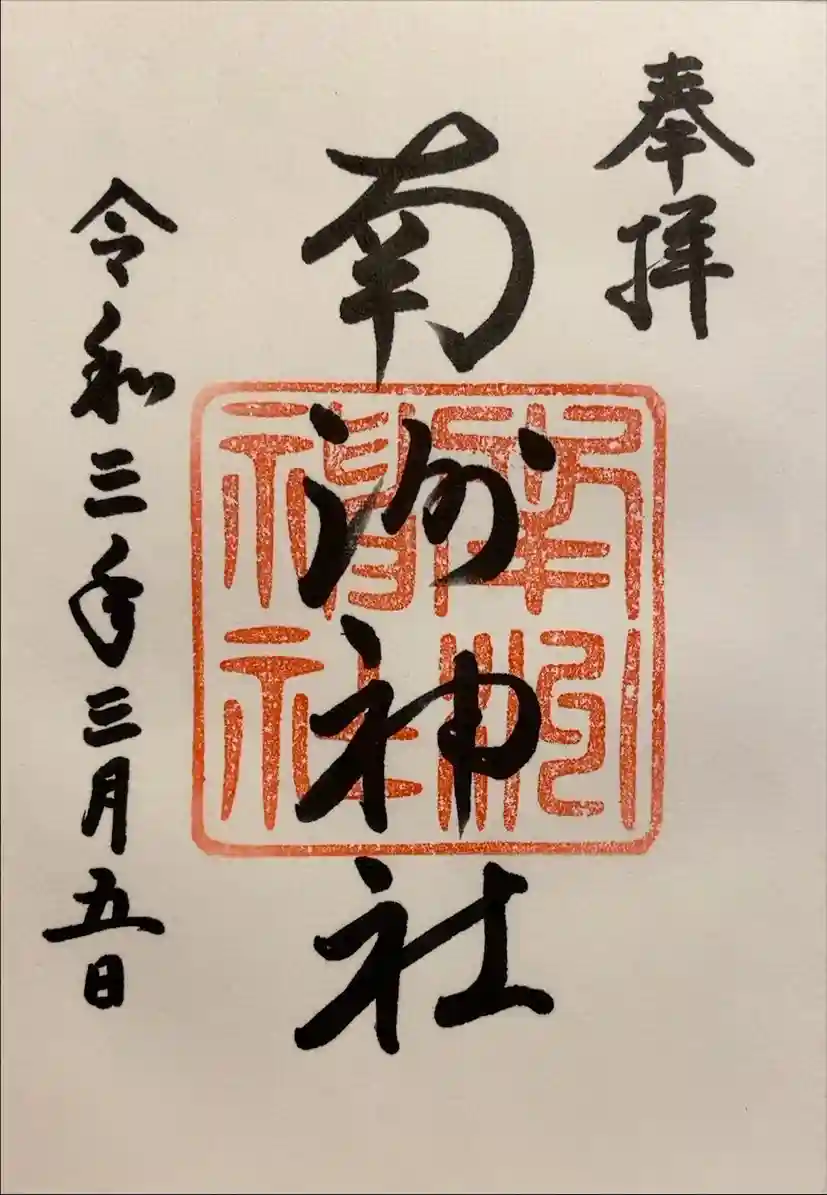 奉拝
南洲神社
南洲神社
令和三年三月五日